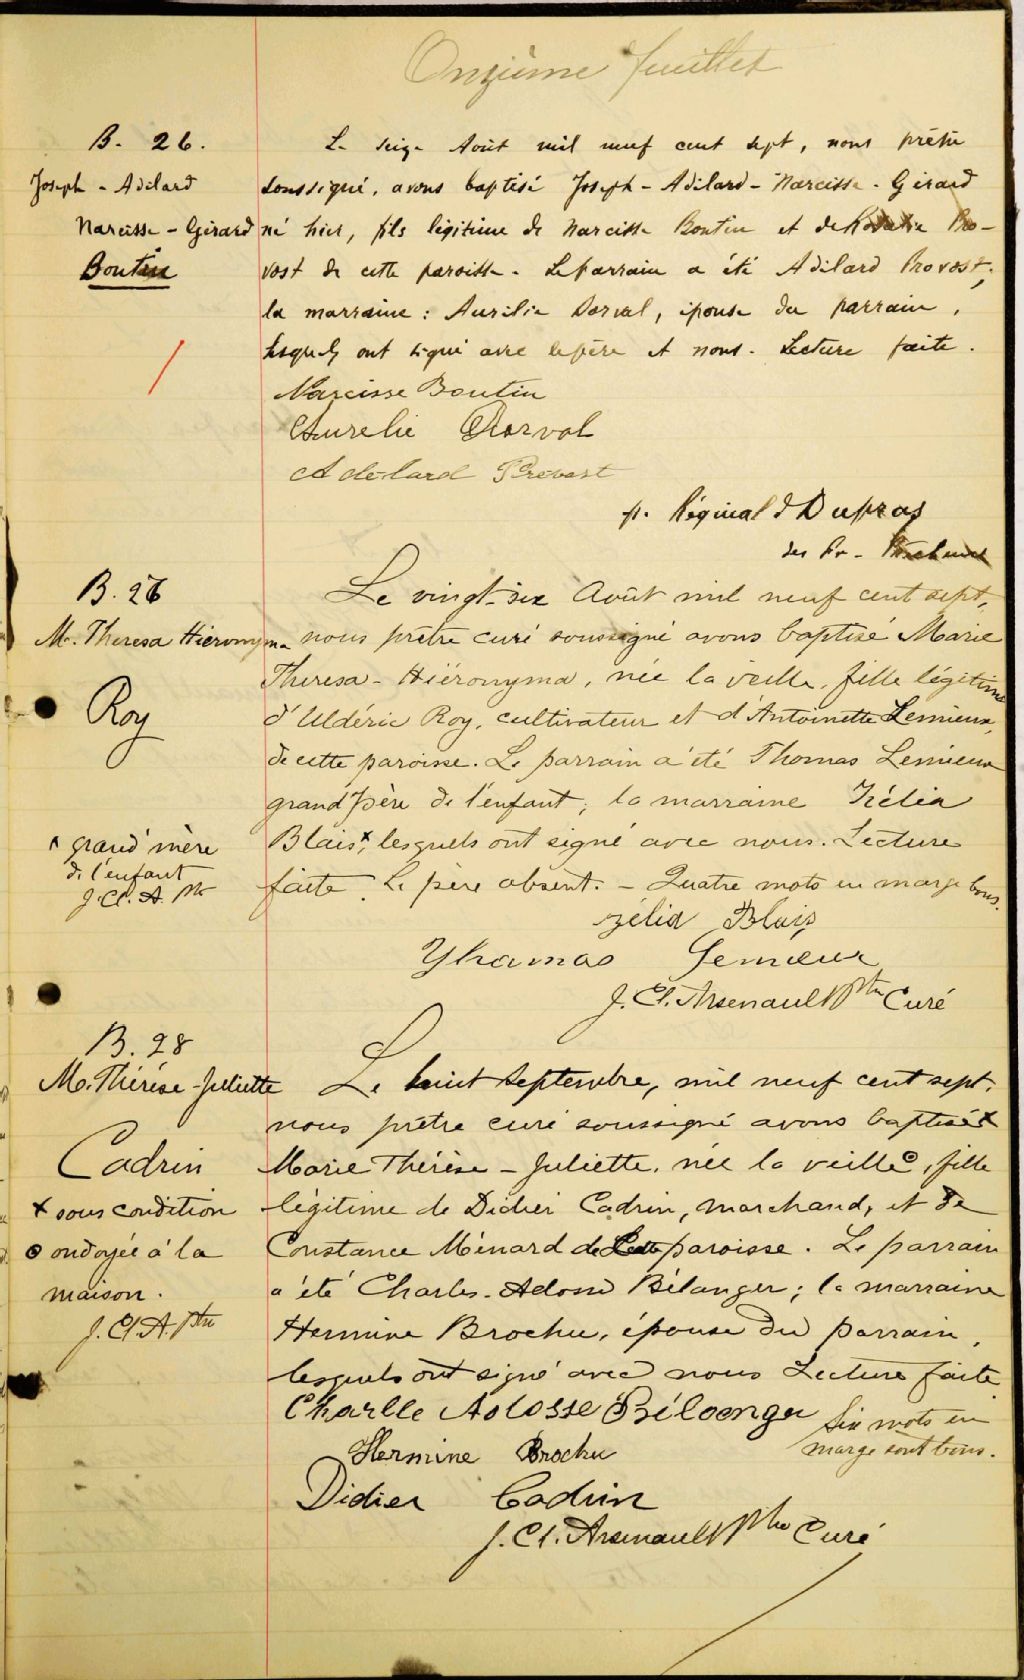 Onzième feuillet
B. 26.
Joseph - Adélard
Narcisse - Gérard
Boutin
Le seize Août mil neuf cent sept, nous prêtre
soussigné, avons baptisé Joseph - Adélard - Narcisse - Gérard
né hier, fils légitime de Narcisse Boutin et de Pro-
vost de cette paroisse. Le parrain a été Adélard Provost;
la marraine : Aurélie Dorval, épouse du parrain,
lesquels ont signé avec le père et nous. Lecture faite.
Narcisse Boutin
Aurelie Dorval
Adélard Prévost
p. Réginald Dupras
des Fr.
B. 27
M. Theresa Hiéronyma
Roy
x grand'mère
de l'enfant
J. Cl. A. Ptre
Le vingt-six Août mil neuf cent sept,
nous prêtre curé soussigné avons baptisé Marie
Theresa - Hiéronyma, née la veille, fille légitime
d'Uldéric Roy, cultivateur et d'Antoinette Lemieux,
de cette paroisse. Le parrain a été Thomas Lemieux
grand'père de l'enfant; la marraine Zélia
Blais x, lesquels ont signé avec nous. Lecture
faite. Le père absent. - Quatre mots en marge bons.
Zélia Blais
Thomas Lemieux
J. Cl. Arsenault Ptre Curé
B. 28
M. Thérèse - Juliette
Cadrin
x sous condition
o ondoyée à la
maison.
J. Cl. A. Ptre
Le huit Septembre, mil neuf cent sept,
nous prêtre curé soussigné avons baptisé x
Marie Thérèse - Juliette, née la veille o, fille
légitime de Didier Cadrin, marchand, et de
Constance Ménard de cette paroisse. Le parrain
a été Charles - Adosse Bélanger; la marraine
Hermine Brochu, épouse du parrain,
lesquels ont signé avec nous Lecture faite.
Charlle Adosse Béloanger
Six mots en
marge sont bons.
Hermine Brochu
Didier Cadrin
J. Cl. Arsenault Ptre Curé